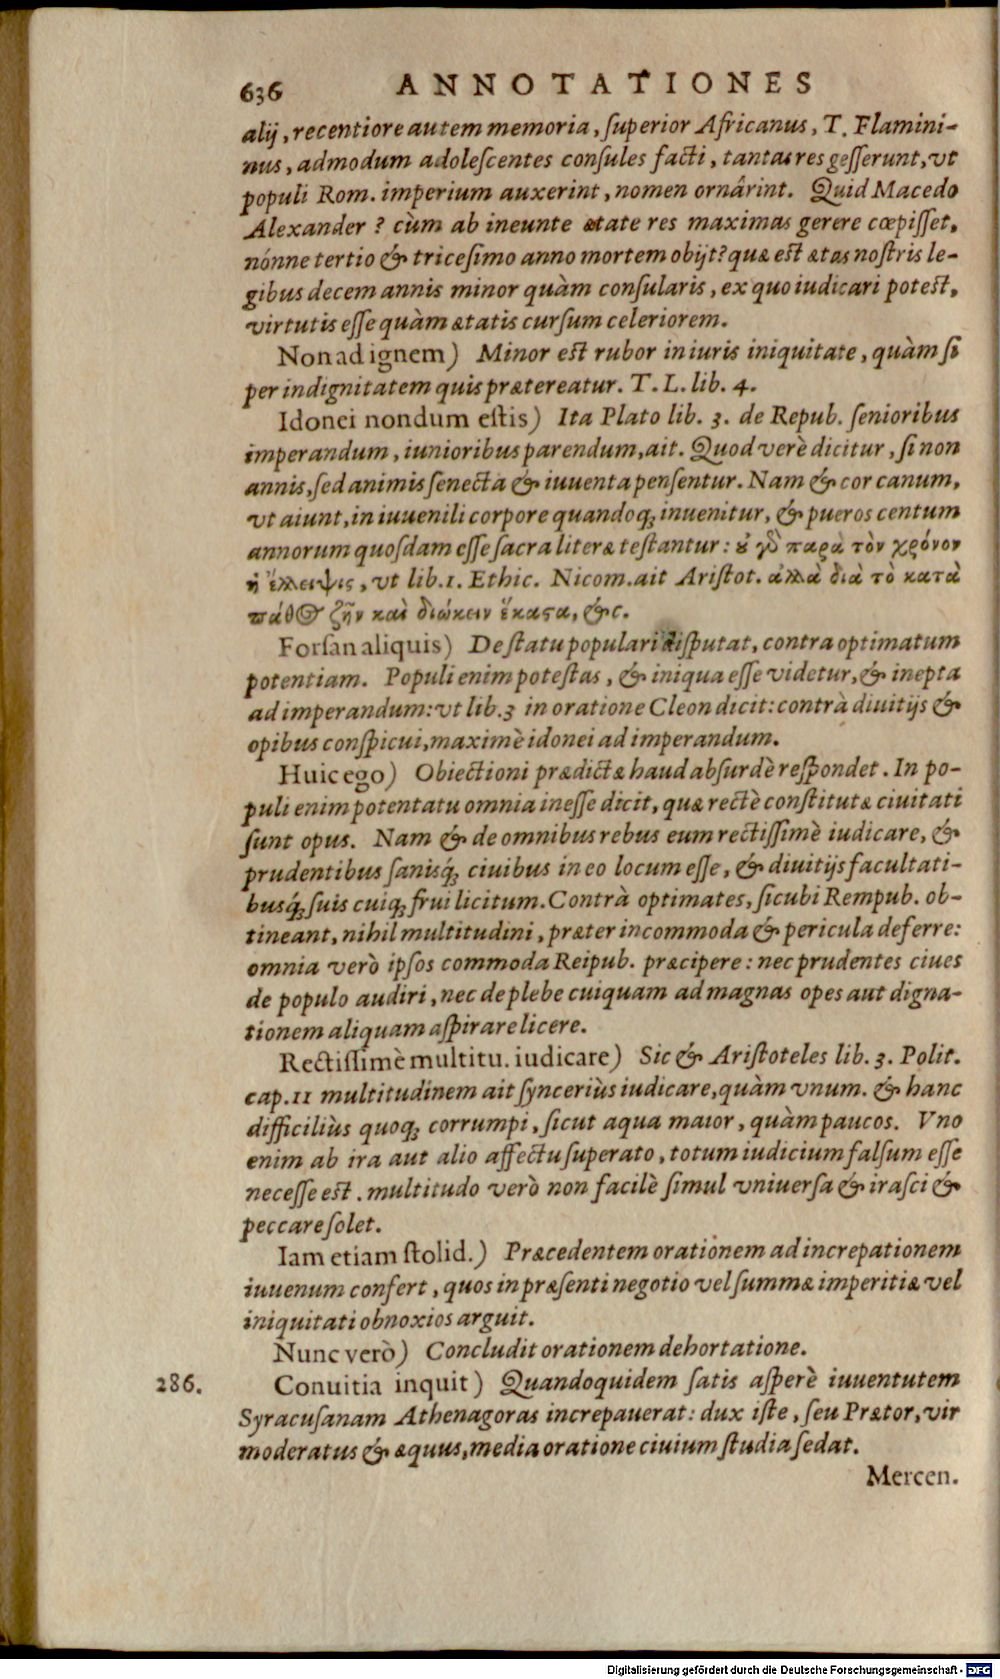 636 ANNOTATIONES
alij, recentiore autem memoria, ſuperior Africanus, T. Flamini-
nus, admodum adoleſcentes conſules facti, tantas res geſſerunt, vt
populi Rom. imperium auxerint, nomen ornârint. Quid Macedo
Alexander? cùm ab ineunte ætate res maximas gerere cœpiſſet,
nónne tertio & triceſimo anno mortem obijt? quæ eſt ætas noſtris le-
gibus decem annis minor quàm conſularis, ex quo iudicari poteſt,
virtutis eſſe quàm ætatis curſum celeriorem.
Non ad ignem) Minor eſt rubor in iuris iniquitate, quàm ſi
per indignitatem quis prætereatur. T. L. lib. 4.
Idonei nondum eſtis) Ita Plato lib. 3. de Repub. ſenioribus
imperandum, iunioribus parendum, ait. Quod verè dicitur, ſi non
annis, ſed animis ſenecta & iuuenta penſentur. Nam & cor canum,
vt aiunt, in iuuenili corpore quandoq; inuenitur, & pueros centum
annorum quoſdam eſſe ſacra literæ teſtantur: ȣ γδ παρὰ τὸν χρόνον
ἡ ἔλλειψις, vt lib. 1. Ethic. Nicom. ait Ariſtot. ἀλλὰ διὰ τὸ κατὰ
πάθΘ ζῆν καὶ διώκειν ἕκαϛα, &c.
Forſan aliquis) De ſtatu populari diſputat, contra optimatum
potentiam. Populi enim poteſtas, & iniqua eſſe videtur, & inepta
ad imperandum: vt lib. 3 in oratione Cleon dicit: contrà diuitijs &
opibus conſpicui, maximè idonei ad imperandum.
Huic ego) Obiectioni prædictæ haud abſurdè reſpondet. In po-
puli enim potentatu omnia ineſſe dicit, quæ rectè conſtitutæ ciuitati
ſunt opus. Nam & de omnibus rebus eum rectiſſimè iudicare, &
prudentibus ſanisq́; ciuibus in eo locum eſſe, & diuitijs facultati-
busq́; ſuis cuiq; frui licitum. Contrà optimates, ſicubi Rempub. ob-
tineant, nihil multitudini, præter incommoda & pericula deferre:
omnia verò ipſos commoda Reipub. præcipere: nec prudentes ciues
de populo audiri, nec de plebe cuiquam ad magnas opes aut digna-
tionem aliquam aſpirare licere.
Rectiſſimè multitu. iudicare) Sic & Ariſtoteles lib. 3. Polit.
cap. 11 multitudinem ait ſynceriùs iudicare, quàm vnum. & hanc
difficiliùs quoq; corrumpi, ſicut aqua maior, quàm paucos. Vno
enim ab ira aut alio affectu ſuperato, totum iudicium falſum eſſe
neceſſe eſt. multitudo verò non facilè ſimul vniuerſa & iraſci &
peccare ſolet.
Iam etiam ſtolid.) Præcedentem orationem ad increpationem
iuuenum confert, quos in præſenti negotio vel ſummæ imperitiæ vel
iniquitati obnoxios arguit.
Nunc verò) Concludit orationem dehortatione.
286. Conuitia inquit) Quandoquidem ſatis aſperè iuuentutem
Syracuſanam Athenagoras increpauerat: dux iſte, ſeu Prætor, vir
moderatus & æquus, media oratione ciuium ſtudia ſedat.
Mercen.
Digitalisierung gefördert durch die Deutsche Forschungsgemeinschaft - DFG